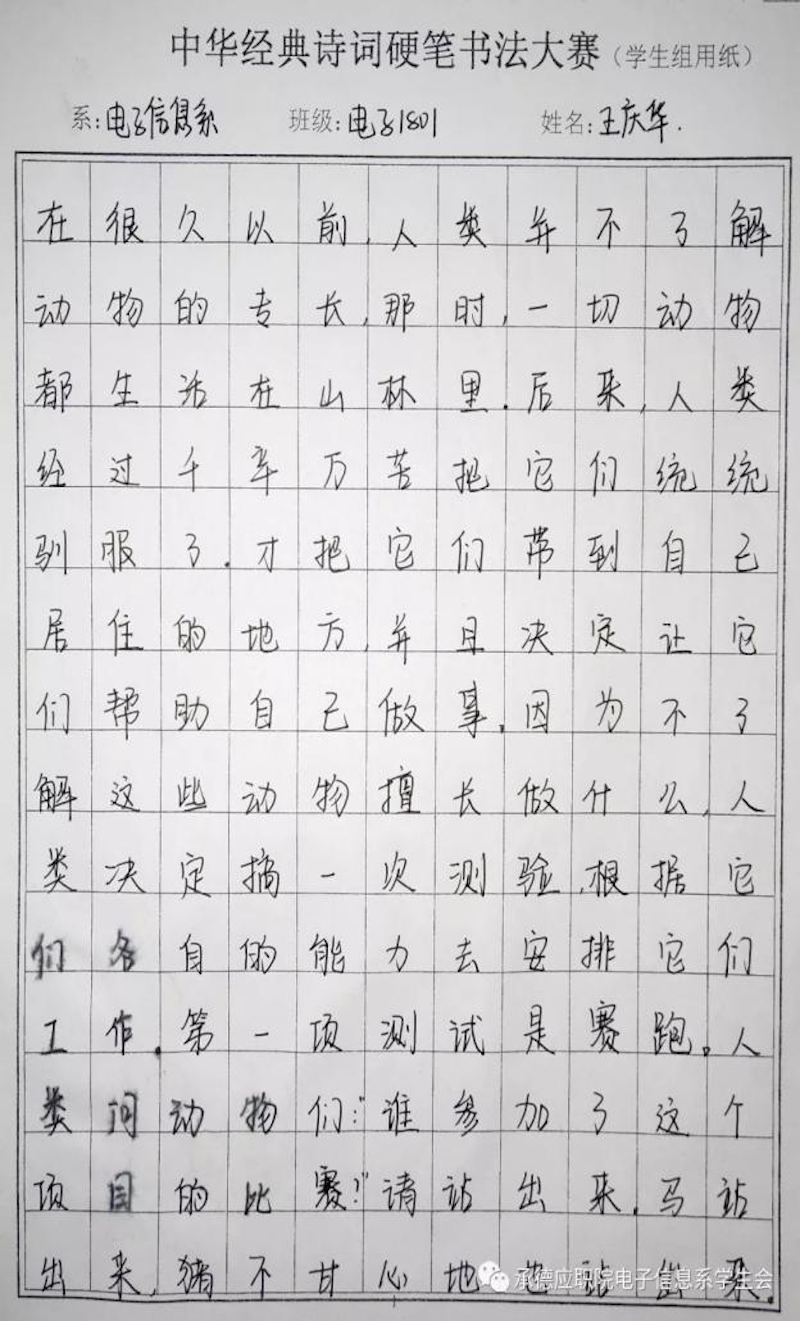 中华经典诗词硬笔书法大赛（学生组用纸）
系:电子信息系 班级:电子1801 姓名:王庆华.
在很久以前,人类并不了解
动物的专长,那时,一切动物
都生活在山林里.后来,人类
经过千辛万苦把它们统统
驯服了.才把它们带到自己
居住的地方,并且决定让它
们帮助自己做事.因为不了
解这些动物擅长做什么,人
类决定搞一次测验,根据它
们各自的能力去安排它们
工作.第一项测试是赛跑。人
类问动物们:"谁参加了这个
项目的比赛?"请站出来.马站
出来,猪不甘心地也站出来.
承德应职院电子信息系学生会